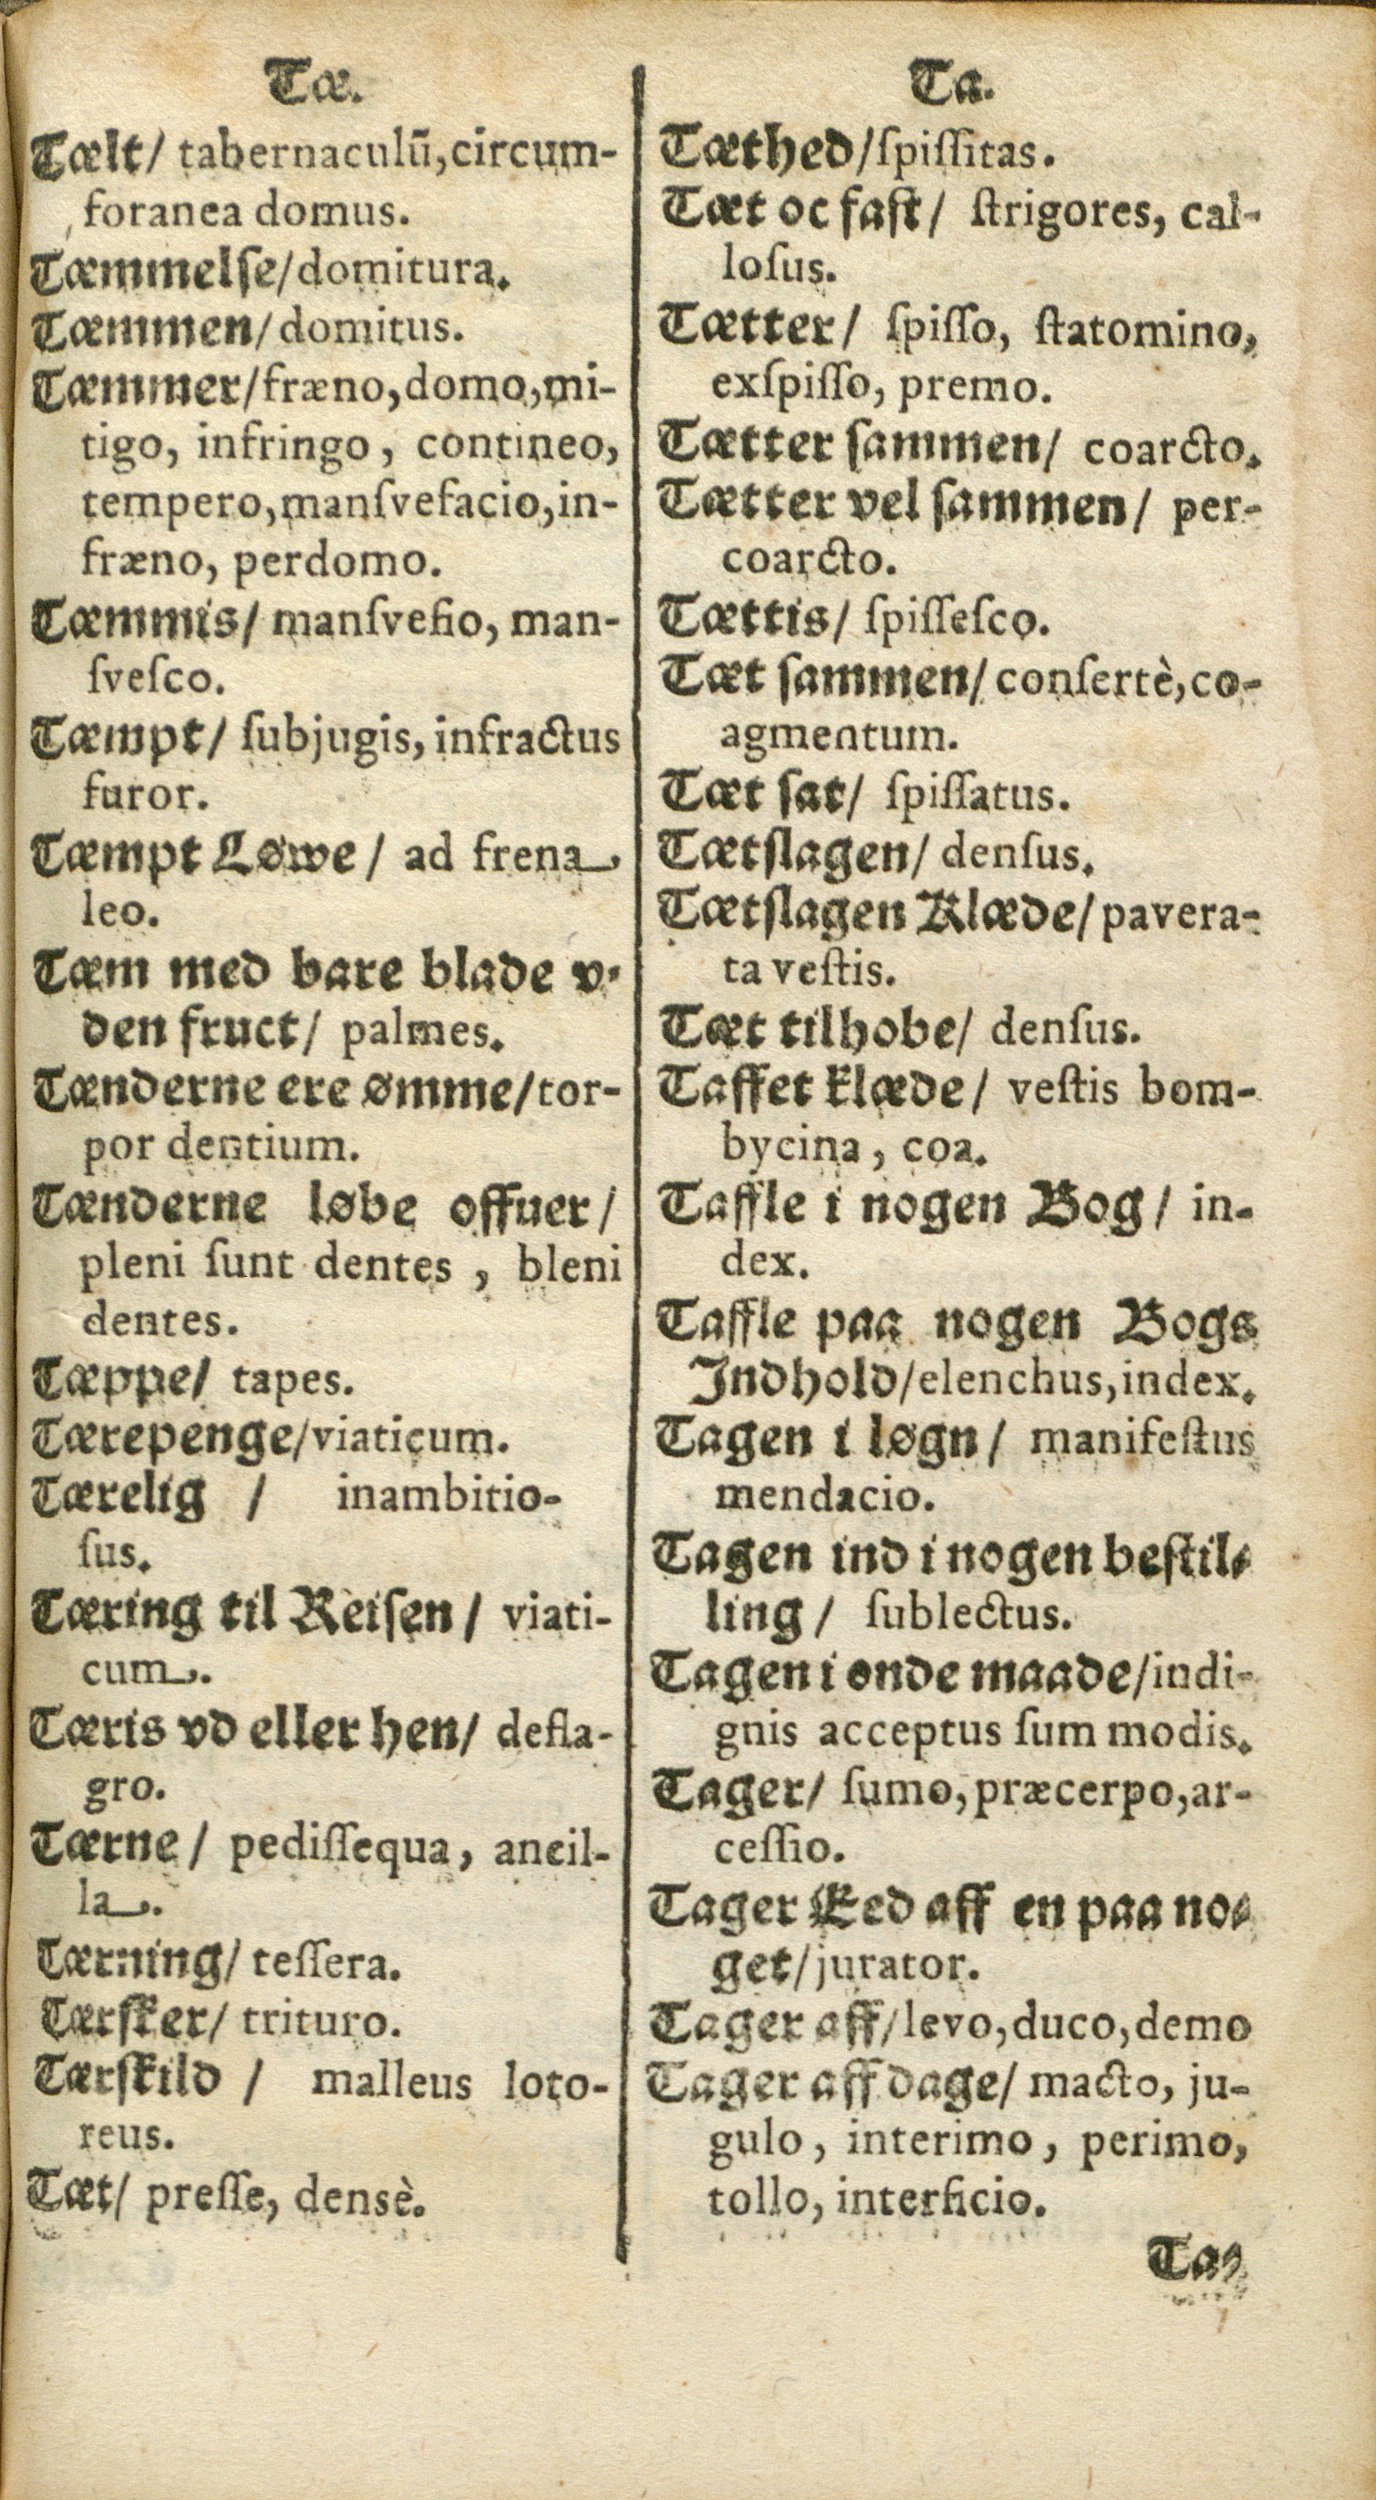 Tæ.
Tælt/ tabernaculū, circum-
foranea domus.
Tæmmelſe/ domitura.
Tæmmen/ domitus.
Tæmmer/ fræno, domo, mi-
tigo, infringo, contineo,
tempero, manſvefacio, in-
fræno, perdomo.
Tæmmis/ manſvefio, man-
ſveſco.
Tæmpt/ ſubjugis, infractus
furor.
Tæmpt Løwe/ ad frena
leo.
Tæm med bare blade v-
den fruct/ palmes.
Tænderne ere ømme/ tor-
por dentium.
Tænderne løbe offuer/
pleni ſunt dentes, bleni
dentes.
Tæppe/ tapes.
Tærepenge/ viaticum.
Tærelig / inambitio-
ſus.
Tæring til Reiſen/ viati-
cum.
Tæris vd eller hen/ defla-
gro.
Tærne/ pediſſequa, ancil-
la.
Tærning/ teſſera.
Tærſker/ trituro.
Tærſkild / malleus loto-
reus.
Tæt/ preſſe, densè.
Ta.
Tæthed/ ſpiſſitas.
Tæt oc faſt/ ſtrigores, cal-
loſus.
Tætter/ ſpiſſo, ſtatomino,
exſpiſſo, premo.
Tætter ſammen/ coarcto.
Tætter vel ſammen/ per-
coarcto.
Tættis/ ſpiſſeſco.
Tæt ſammen/ conſertè, co-
agmentum.
Tæt ſat/ ſpiſſatus.
Tætſlagen/ denſus.
Tætſlagen Klæde/ pavera-
ta veſtis.
Tæt tilhobe/ denſus.
Taffet klæde/ veſtis bom-
bycina, coa.
Taffle i nogen Bog/ in-
dex.
Taffle paa nogen Bogs
Indhold/ elenchus, index.
Tagen i løgn/ manifeſtus
mendacio.
Tagen ind i nogen beſtil-
ling/ ſublectus.
Tagen i onde maade/ indi-
gnis acceptus ſum modis.
Tager/ ſumo, præcerpo, ar-
ceſſio.
Tager Eed aff en paa no-
get/ jurator.
Tager aff/ levo, duco, demo
Tager aff dage/ macto, ju-
gulo, interimo, perimo,
tollo, interficio.
Ta-